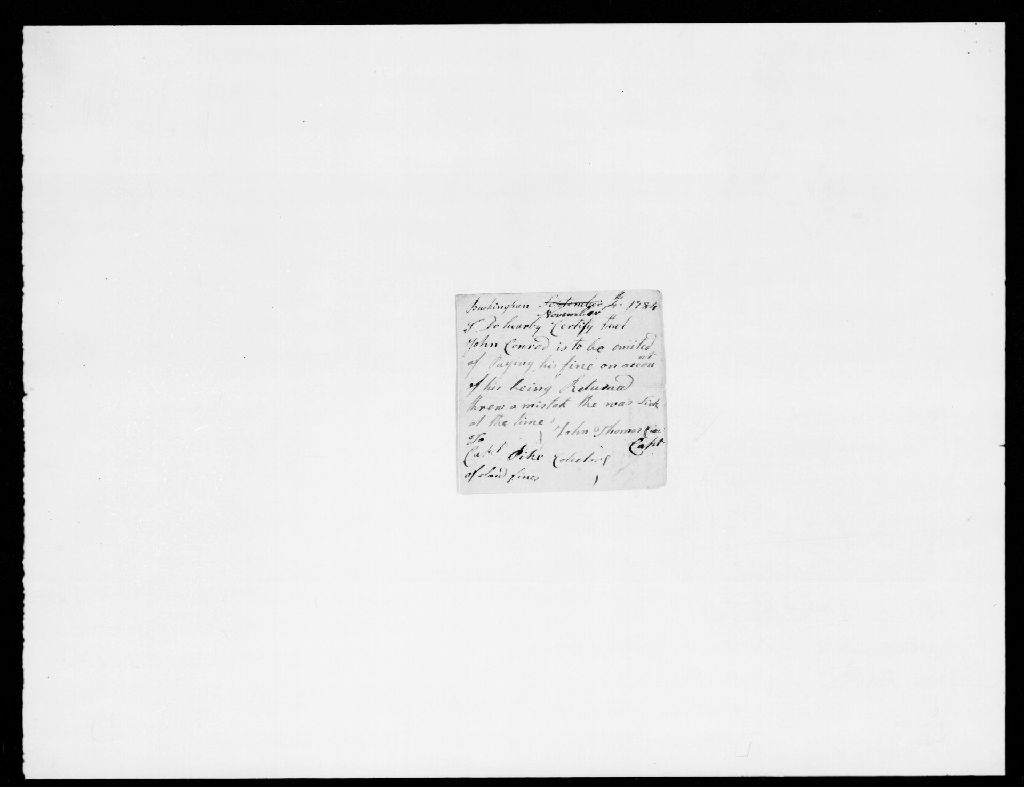 Buckingham September 1784
November
I Do hearby Certify that
John Conrad is to be omited
of Paying his fine on account
of his being Returned
threw a mistak the was Sick
at the time John Thomas
To Capt
Capt Pike Colecting
of said fines